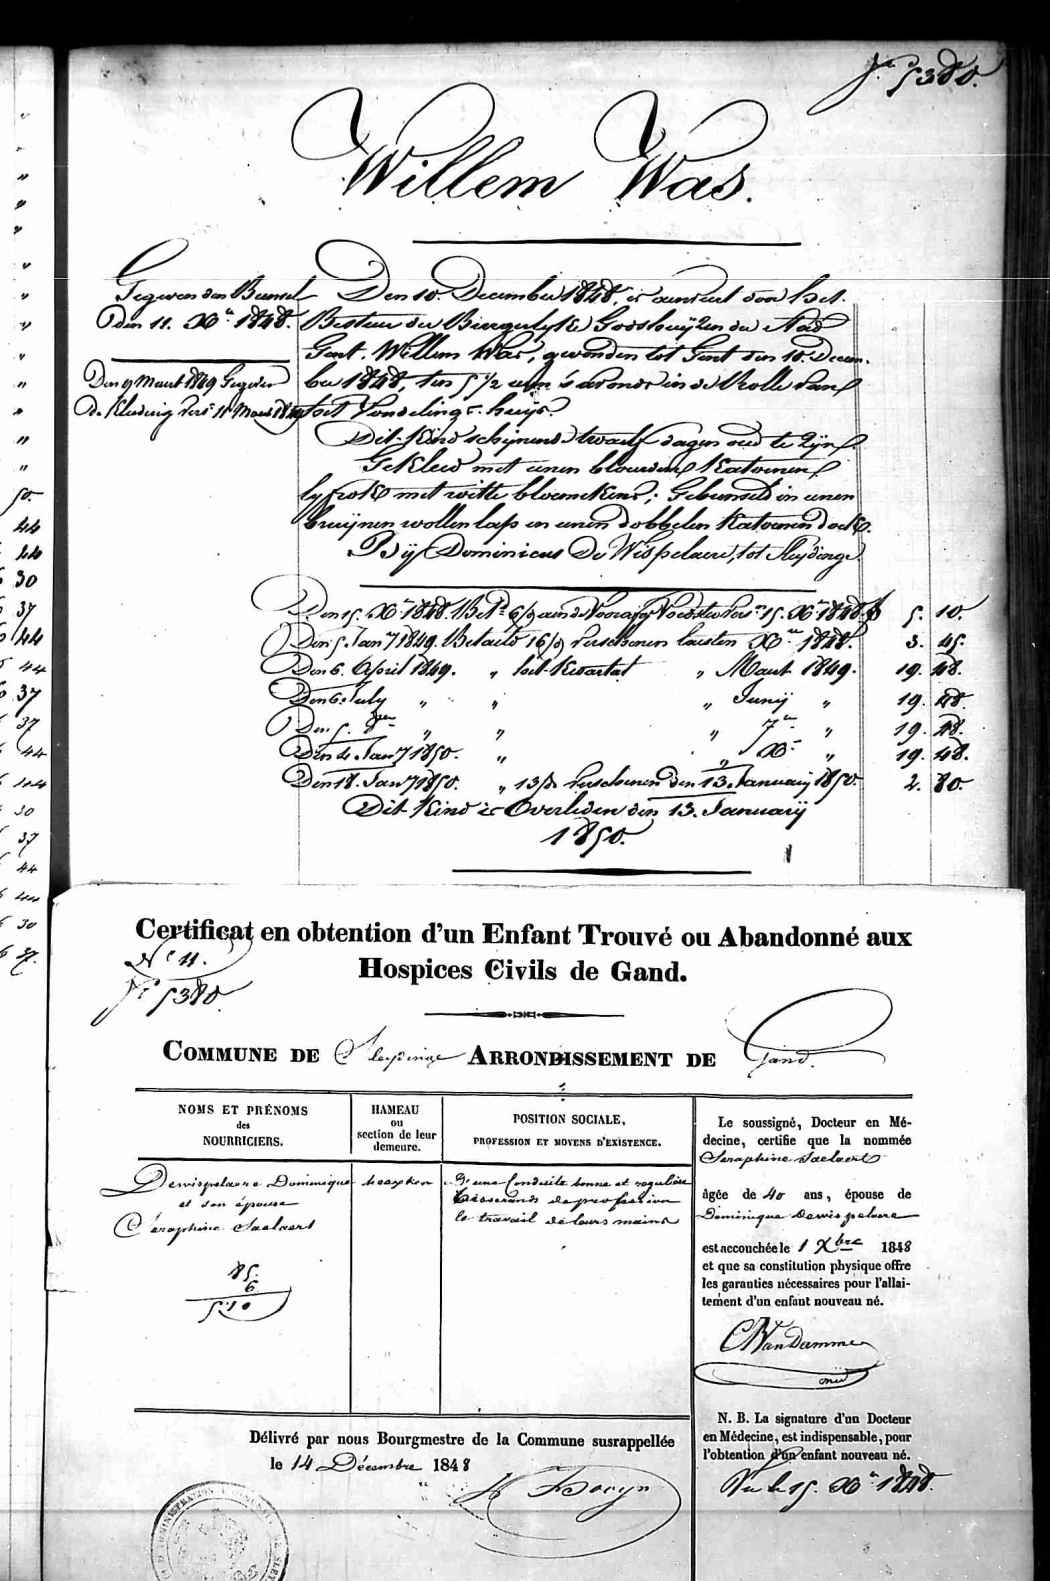 fo. 5380.
Willem Was.
Gegeven den Bunsel
den 11. Xer 1848.
Den 9 Maart 1849 Gegeven
de Kleeding Vers. 11 Maart 1849
Den 10. December 1848, is aenveert door het
Bestuur der Burgerlyke Godshuyzen der Stad
Gent. Willem Was, gevonden tot Gent den 10. Decem-
ber 1848, ten 5 1/2 uren 's avonds in de Rolle van
het Vondelings-huys.
Dit Kind schynende twaelf dagen oud te zyn,
Gekleed met eenen blauwen Katoenen
lyfrok met witte bloemekens; Gebunseld in eenen
bruynen wollen lap en eenen dobbelen Katoenen doek.
By Dominicus De Wispelaere, tot Sleydinge.
Den 15. Xer 1848. Bet. 6/d aen de Voorafg. Voedster Vers. 15. Xer 1848. 5. 10.
Den 5. Jany 1849. Betaeld 16/d Verschenen laesten Xer 1848. 3. 45.
Den 6. April 1849. " het Kwartael " Maart 1849. 19. 48.
Den 6. July " " " Juny " 19. 48.
Den 5. 8ber " " " 7er " 19. 48.
Den 4. Jany 1850. " " Xer " 19. 48.
Den 18. Jany 1850. " 13/d Verschenen den 13. January 1850. 2. 80.
Dit Kind is Overleden den 13. January
1850.
Certificat en obtention d'un Enfant Trouvé ou Abandonné aux
Hospices Civils de Gand.
No 11.
fo 5380.
COMMUNE DE Sleydinge ARRONDISSEMENT DE Gand.
NOMS ET PRÉNOMS
des
NOURRICIERS.
HAMEAU
ou
section de leur
demeure.
POSITION SOCIALE,
PROFESSION ET MOYENS D'EXISTENCE.
Dewispelaere Dominique
et son épouse
Séraphine Saelaert
85.
6
5.10
D'une Conduite bonne et régulière
Tisserands de profession
le travail de leurs mains
Le soussigné, Docteur en Mé-
decine, certifie que la nommée
Seraphine Saelaert
âgée de 40 ans, épouse de
Dominique Dewispelaere
est accouchée le 1 Xbre 1848
et que sa constitution physique offre
les garanties nécessaires pour l'allai-
tement d'un enfant nouveau né.
C VanDamme
md
N. B. La signature d'un Docteur
en Médecine, est indispensable, pour
l'obtention d'un enfant nouveau né.
Vu le 15. Xer 1848.
Délivré par nous Bourgmestre de la Commune susrappellée
le 14 Décembre 1848